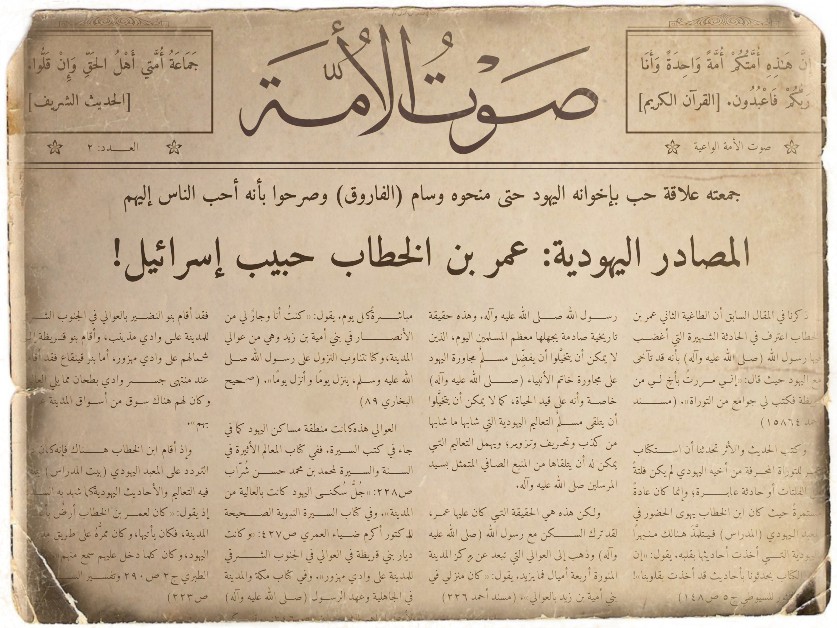 أنَّ هَـٰذِهِ أُمَّتُكُمْ أُمَّةً وَاحِدَةً وَأَنَا
رَبُّكُمْ فَاعْبُدُونِ. [القرآن الكريم]
صَوْتُ الأُمَّة
جَمَاعَةُ أُمَّتِي أَهْلُ الحَقِّ وَإِنْ قَلُّوا.
[الحديث الشريف]
صوت الأمة الواعية
العـــدد: ٢
جمعته علاقة حب بإخوانه اليهود حتى منحوه وسام (الفاروق) وصرحوا بأنه أحب الناس إليهم
المصادر اليهودية: عمر بن الخطاب حبيب إسرائيل!
ذكرنا في المقال السابق أن الطاغية الثاني عمر بن
الخطاب اعترف في الحادثة الشهيرة التي أغضب
فيها رسول الله (صلى الله عليه وآله) بأنه قد تآخى
مع اليهود حيث قال: «إني مررتُ بأخٍ لي من
قريظة فكتب لي جوامع من التوراة». (مسند
أحمد ١٥٨٦٤)
وكتب الحديث والأثر تحدثنا أن استكتاب
للتوراة المحرفة من أخيه اليهودي لم يكن فلتةً
الفلتات أو حادثة عابرة، وإنما كان عادةً
مستمرة حيث كان ابن الخطاب يهوى الحضور في
اليهودي (المدراس) فيستلذّ هنالك مستمعا
التي أخذت أحاديثها بقلبه. يقول: «إن
الكتاب يحدثونا بأحاديث قد أخذت بقلوبنا!»
للسيوطي ج٥ ص١٤٨)
رسول الله صلى الله عليه وآله. وهذه حقيقة
تاريخية صادمة يجهلها معظم المسلمين اليوم، الذين
لا يمكن أن يتخيّلوا أن يفضّل مسلمٌ مجاورة اليهود
على مجاورة خاتم الأنبياء (صلى الله عليه وآله)
خاصة وأنه على قيد الحياة، كما لا يمكن أن يتخيّلوا
أن يتلقى مسلمٌ التعاليم اليهودية التي شابها ما شابها
من كذب وتحريف وتزوير؛ ويهمل التعاليم التي
يمكن له أن يتلقاها من المنبع الصافي المتمثل بسيد
المرسلين صلى الله عليه وآله.
ولكن هذه هي الحقيقة التي كان عليها عمر،
لقد ترك السكن مع رسول الله (صلى الله عليه
وآله) وذهب إلى العوالي التي تبعد عن مركز المدينة
المنورة أربعة أميال فما يزيد، يقول: «كان منزلي في
بني أمية بن زيد بالعوالي» (مسند أحمد ٢٢٦)
مباشرةً كل يوم، يقول: «كنتُ أنا وجارٌ لي من
الأنصار في بني أمية بن زيد وهي من عوالي
المدينة، وكنا نتناوب النزول على رسول الله صلى
الله عليه وسلم، ينزل يومًا وأنزل يومًا». (صحيح
البخاري ٨٩)
العوالي هذه كانت منطقة مساكن اليهود كما في
جاء في كتب السيرة، ففي كتاب المعالم الأثيرة في
السنة والسيرة لمحمد بن محمد حسن شُرّاب
ص٢٢٨: «جُلّ سُكنى اليهود كانت بالعالية من
المدينة»، وفي كتاب السيرة النبوية الصحيحة
للدكتور أكرم ضياء العمري ص٤٢٧: «وكانت
ديار بني قريظة في العوالي في الجنوب الشرقي
للمدينة على وادي مهزور»، وفي كتاب مكة والمدينة
في الجاهلية وعهد الرسول (صلى الله عليه وآله)
فقد أقام بنو النضير بالعوالي في الجنوب
للمدينة على وادي مذينب، وأقام بنو قريظة إلى
شمالهم على وادي مهزور، أما بنو قينقاع فقد
عند منتهى جسر وادي بطحان مما يلي
وكان لهم هناك سوق من أسواق المدينة
بهم».
وإذ أقام ابن الخطاب هناك فإنه كان
التردد على المعبد اليهودي (بيت المدراس)
فيه التعاليم والأحاديث اليهودية كما شهد به
إذ يقول: «كان لعمر بن الخطاب أرضٌ
المدينة، فكان يأتيها، وكان ممرُّهُ على طريق
اليهود، وكان كلما دخل عليهم سمع منهم
الطبري ج٢ ص٢٩٠ وتفسير
ص٢٢٣)